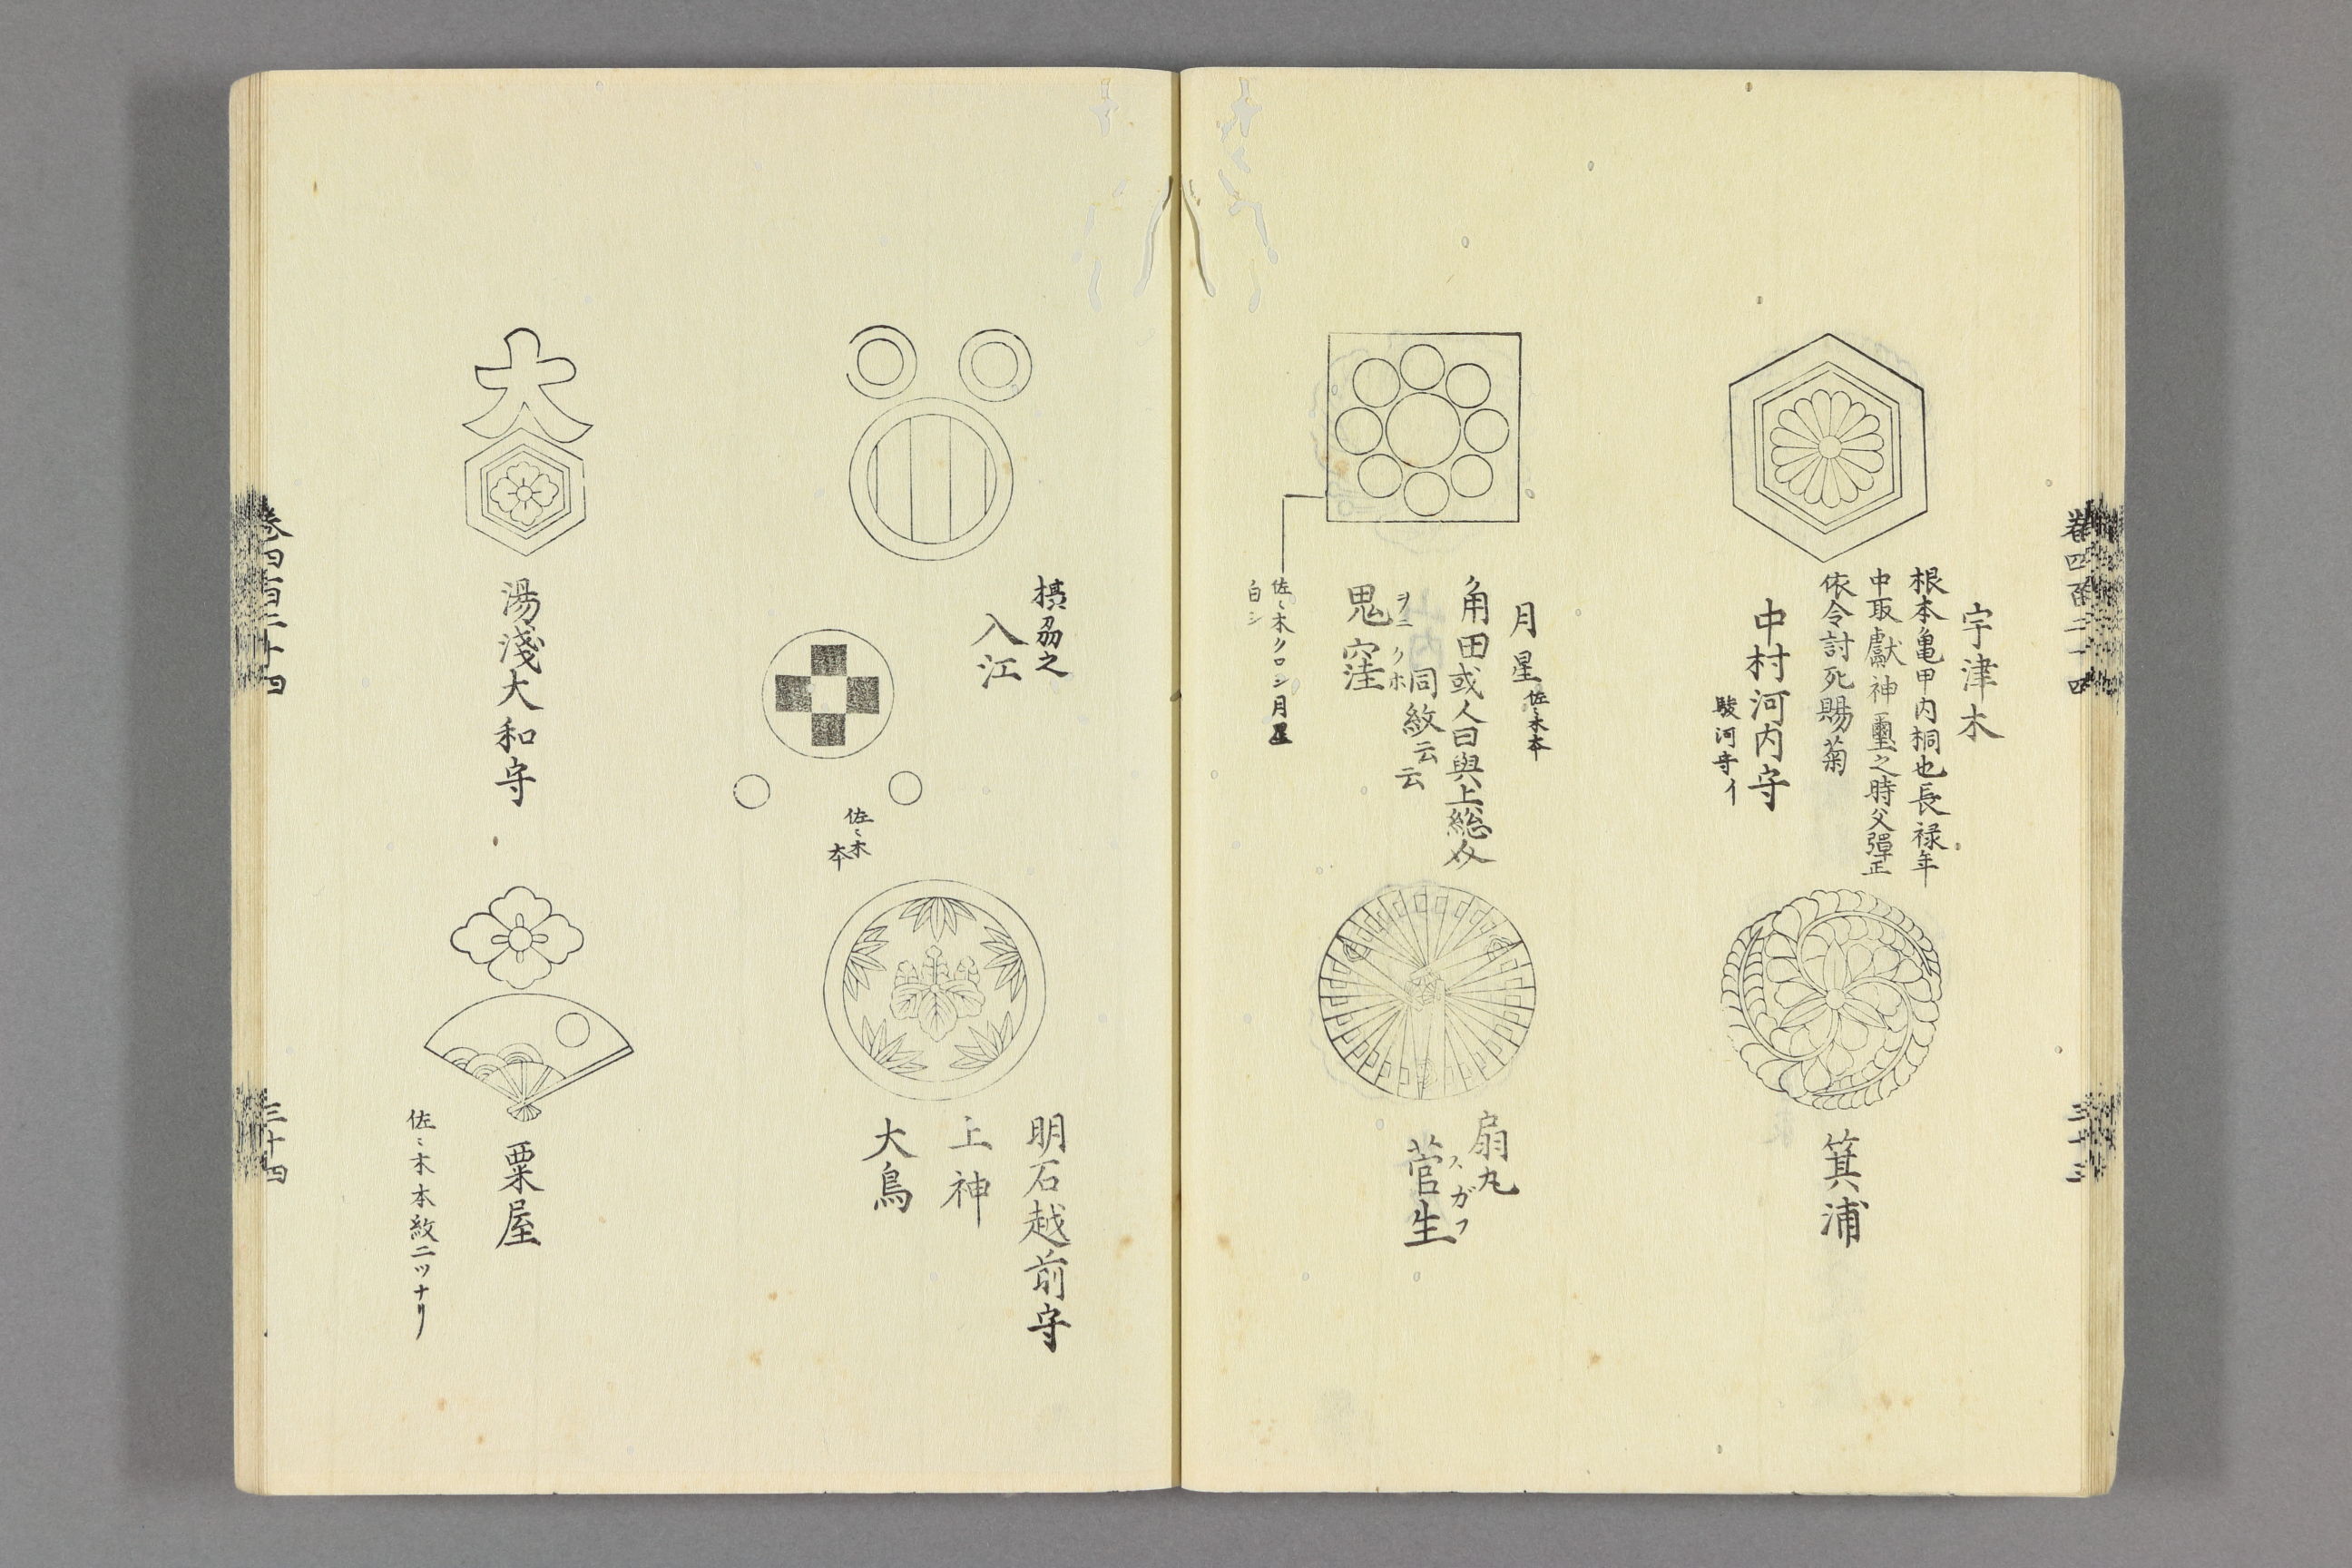 卷四百二十四
三十三
宇津木
根本亀甲内桐也長禄年
中取獻神璽之時父彈正
依令討死賜菊
中村河内守
駿河守イ
箕浦
月星
佐〻木本
角田或人曰與上総介
同紋云云
鬼窪
ヲニクホ
佐〻木クロシ月星
白シ
扇丸
菅生
スガフ
入江
佐〻木
本
明石越前守
上神
大鳥
大
湯淺大和守
粟屋
佐〻木本紋二ツナリ
卷四百二十四
三十四